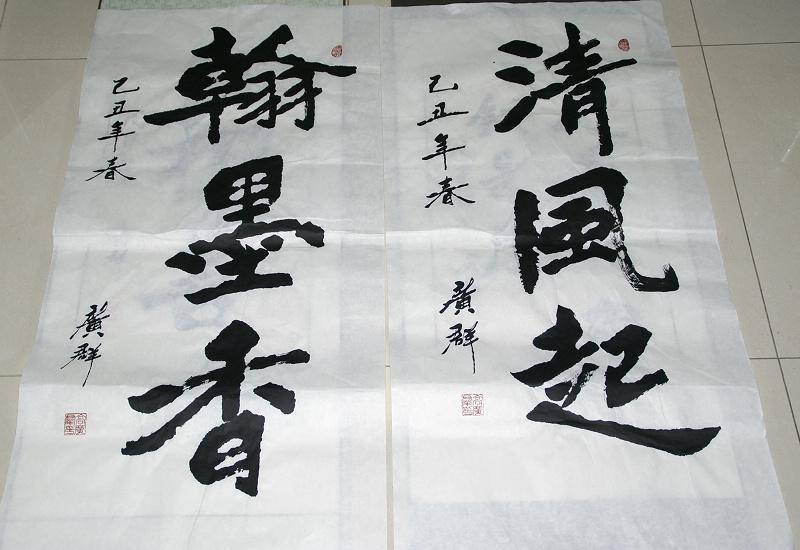 清風起
己丑年春
廣群
翰墨香
己丑年春
廣群